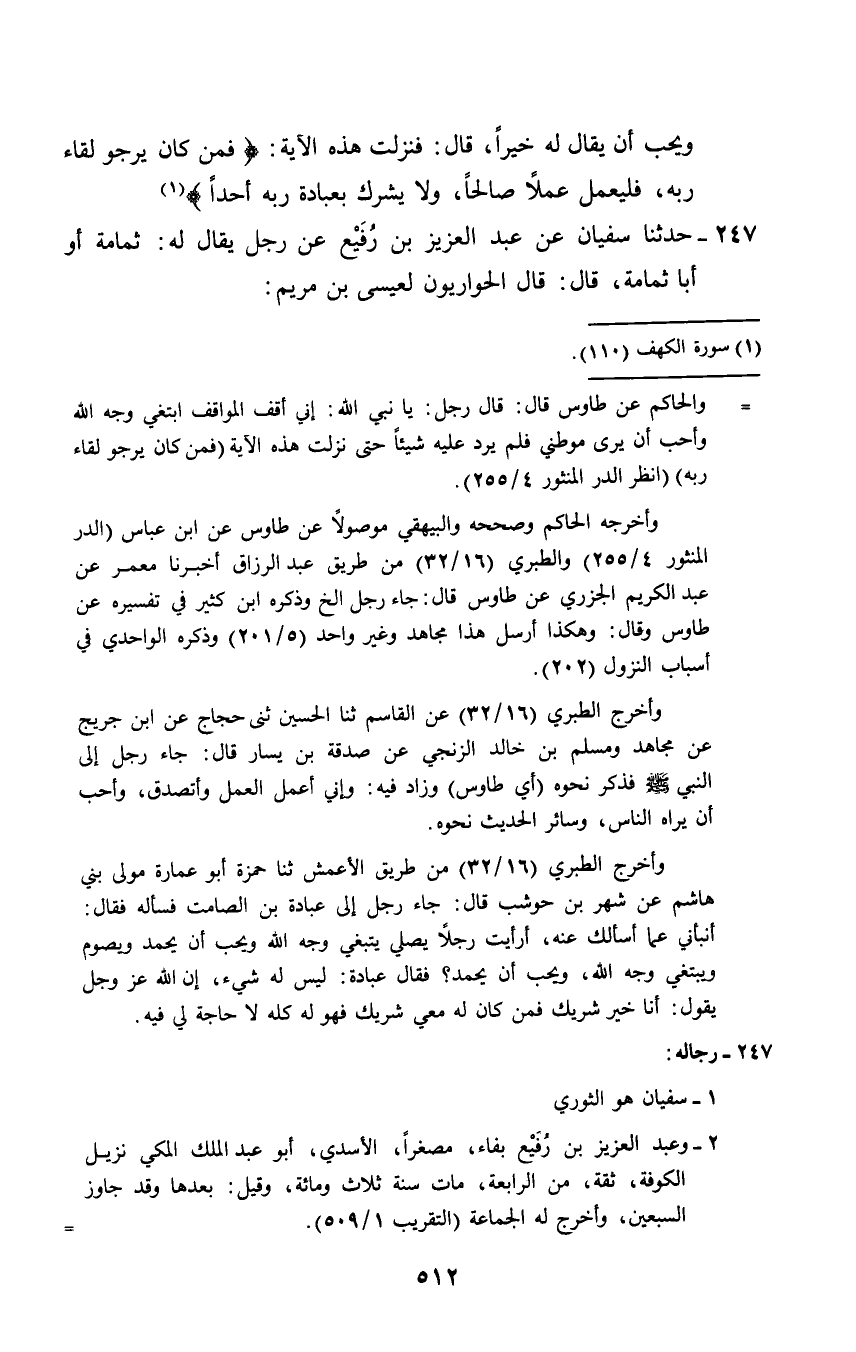 ويحب أن يقال له خيراً، قال: فنزلت هذه الآية: ﴿ فمن كان يرجو لقاء
ربه، فليعمل عملاً صالحاً، ولا يشرك بعبادة ربه أحداً ﴾(١)
٢٤٧ ـ حدثنا سفيان عن عبد العزيز بن رُفَيْع عن رجل يقال له: ثمامة أو
أبا ثمامة، قال: قال الحواريون لعيسى بن مريم:
(١) سورة الكهف (١١٠).
= والحاكم عن طاوس قال: قال رجل: يا نبي الله: إني أقف المواقف ابتغي وجه الله
وأحب أن يرى موطني فلم يرد عليه شيئاً حتى نزلت هذه الآية (فمن كان يرجو لقاء
ربه) (انظر الدر المنثور ٢٥٥/٤).
وأخرجه الحاكم وصححه والبيهقي موصولاً عن طاوس عن ابن عباس (الدر
المنثور ٢٥٥/٤) والطبري (٣٢/١٦) من طريق عبد الرزاق أخبرنا معمر عن
عبد الكريم الجزري عن طاوس قال: جاء رجل الخ وذكره ابن كثير في تفسيره عن
طاوس وقال: وهكذا أرسل هذا مجاهد وغير واحد (٢٠١/٥) وذكره الواحدي في
أسباب النزول (٢٠٢).
وأخرج الطبري (٣٢/١٦) عن القاسم ثنا الحسين ثنى حجاج عن ابن جريج
عن مجاهد ومسلم بن خالد الزنجي عن صدقة بن يسار قال: جاء رجل إلى
النبي ﷺ فذكر نحوه (أي طاوس) وزاد فيه: وإني أعمل العمل وأتصدق، وأحب
أن يراه الناس، وسائر الحديث نحوه.
وأخرج الطبري (٣٢/١٦) من طريق الأعمش ثنا حمزة أبو عمارة مولى بني
هاشم عن شهر بن حوشب قال: جاء رجل إلى عبادة بن الصامت فسأله فقال:
أنبأني عما أسألك عنه، أرأيت رجلاً يصلي يتبغي وجه الله ويحب أن يحمد ويصوم
ويبتغي وجه الله، ويحب أن يحمد؟ فقال عبادة: ليس له شيء، إن الله عز وجل
يقول: أنا خير شريك فمن كان له معي شريك فهو له كله لا حاجة لي فيه.
٢٤٧ ـ رجاله:
١ ـ سفيان هو الثوري
٢ ـ وعبد العزيز بن رُفَيْع بفاء، مصغراً، الأسدي، أبو عبد الملك المكي نزيل
الكوفة، ثقة، من الرابعة، مات سنة ثلاث ومائة، وقيل: بعدها وقد جاوز
السبعين، وأخرج له الجماعة (التقريب ٥٠٩/١). =
٥١٢